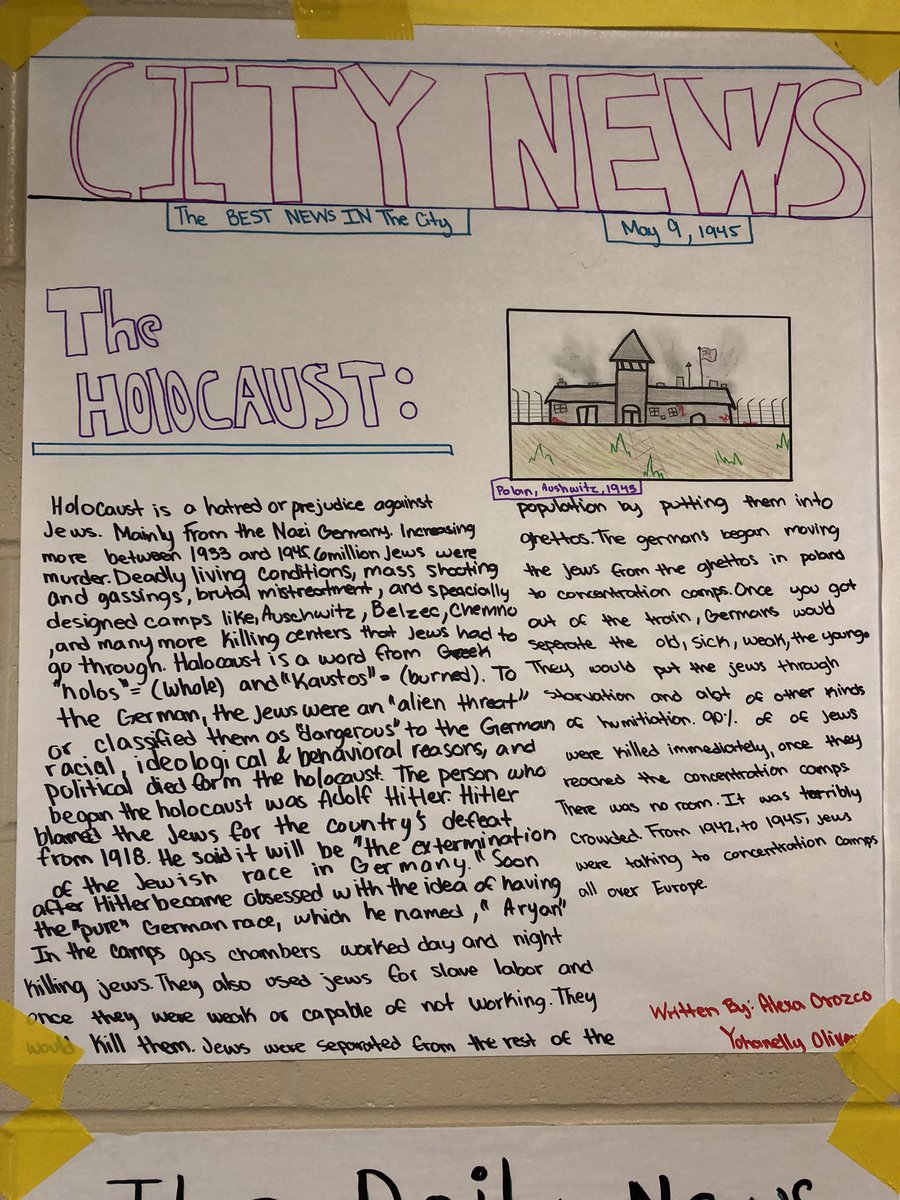 CITY NEWS
The BEST NEWS IN The City
May 9, 1945
The
HOLOCAUST:
Polan, Aushwitz, 1943
Holocaust is a hatred or prejudice against
Jews. Mainly from the Nazi Germany. Increasing
more between 1933 and 1945. 6million Jews were
murder. Deadly living conditions, mass shooting
and gassings, brutal mistreatment, and speacially
designed camps like, Auschwitz, Belzec, Chemno
, and many more killing centers that Jews had to
go through. Holocaust is a word from Greek
"holos"= (whole) and "Kaustos"= (burned). To
the German, the Jews were an "alien threat"
or classified them as "dangerous" to the German
racial, ideological & behavioral reasons, and
political died form the holocaust. The person who
began the holocaust was Adolf Hitler. Hitler
blamed the Jews for the country's defeat
from 1918. He said it will be "the extermination
of the Jewish race in Germany." Soon
after Hitler became obsessed with the idea of having
the "pure" German race, which he named, "Aryan"
In the camps gas chambers worked day and night
killing jews. They also used jews for slave labor and
once they were weak or capable of not working. They
would kill them. Jews were separated from the rest of the
population by putting them into
ghettos. The germans began moving
the jews from the ghettos in poland
to concentration camps. Once you got
out of the train, Germans would
seperate the old, sick, weak, the young.
They would put the jews through
starvation and alot of other kinds
of humitiation. 90% of of jews
were killed immediately, once they
reached the concentration camps
There was no room. It was terribly
crowded. From 1942, to 1945, jews
were taking to concentration camps
all over Europe
Written By: Alexa Orozco
Yohanelly Olive
The Daily News